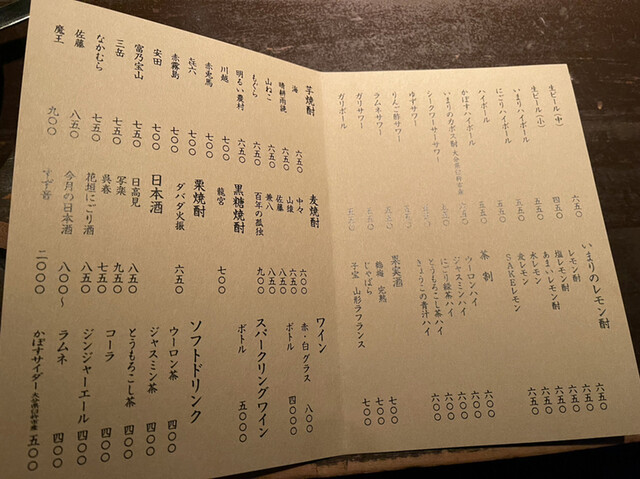 生ビール(中) 六五〇
生ビール(小) 四五〇
いまりハイボール 五五〇
にごりハイボール 五五〇
ハイボール 五五〇
かぼすハイボール
いまりのカボス酎 大分県臼杵市産 六五〇
シークヮーサーサワー 五五〇
ゆずサワー 五五〇
りんご酢サワー 五五〇
ラムネサワー 五五〇
ガリサワー 五五〇
ガリボール 五五〇
いまりのレモン酎
レモン酎 六五〇
塩レモン酎 六五〇
あまいレモン酎 六五〇
水レモン 六五〇
レモン 六五〇
SAKEレモン 六五〇
茶割
ウーロンハイ 六〇〇
ジャスミンハイ 六〇〇
にごり緑茶ハイ 六〇〇
とうもろこし茶ハイ 六〇〇
きょうこの青汁ハイ 六〇〇
果実酒
鶴梅 完熟 七〇〇
じゃばら 七〇〇
子宝 山形ラフランス 七〇〇
芋焼酎
海 六五〇
晴耕雨読 六五〇
山ねこ 六五〇
もぐら 六五〇
明るい農村 六五〇
川越 七〇〇
赤兎馬 七〇〇
㐂六 七〇〇
赤霧島 七〇〇
安田 七〇〇
富乃宝山 七五〇
三岳 七五〇
なかむら 七五〇
佐藤 八五〇
魔王 九〇〇
麦焼酎
中々 六〇〇
山猿 六五〇
佐藤 八五〇
兼八 八五〇
百年の孤独 九〇〇
黒糖焼酎
龍宮 七〇〇
栗焼酎
ダバダ火振 六五〇
日本酒
日高見 八五〇
写楽 九五〇
呉春 七五〇
花垣にごり酒 八五〇
今月の日本酒 八〇〇〜
すず音 二〇〇〇
ワイン
赤・白 グラス 八〇〇
ボトル 四〇〇〇
スパークリングワイン
ボトル 五〇〇〇
ソフトドリンク
ウーロン茶 四〇〇
ジャスミン茶 四〇〇
とうもろこし茶 四〇〇
コーラ 四〇〇
ジンジャーエール 四〇〇
ラムネ 四〇〇
かぼすサイダー 大分県臼杵市産 五〇〇